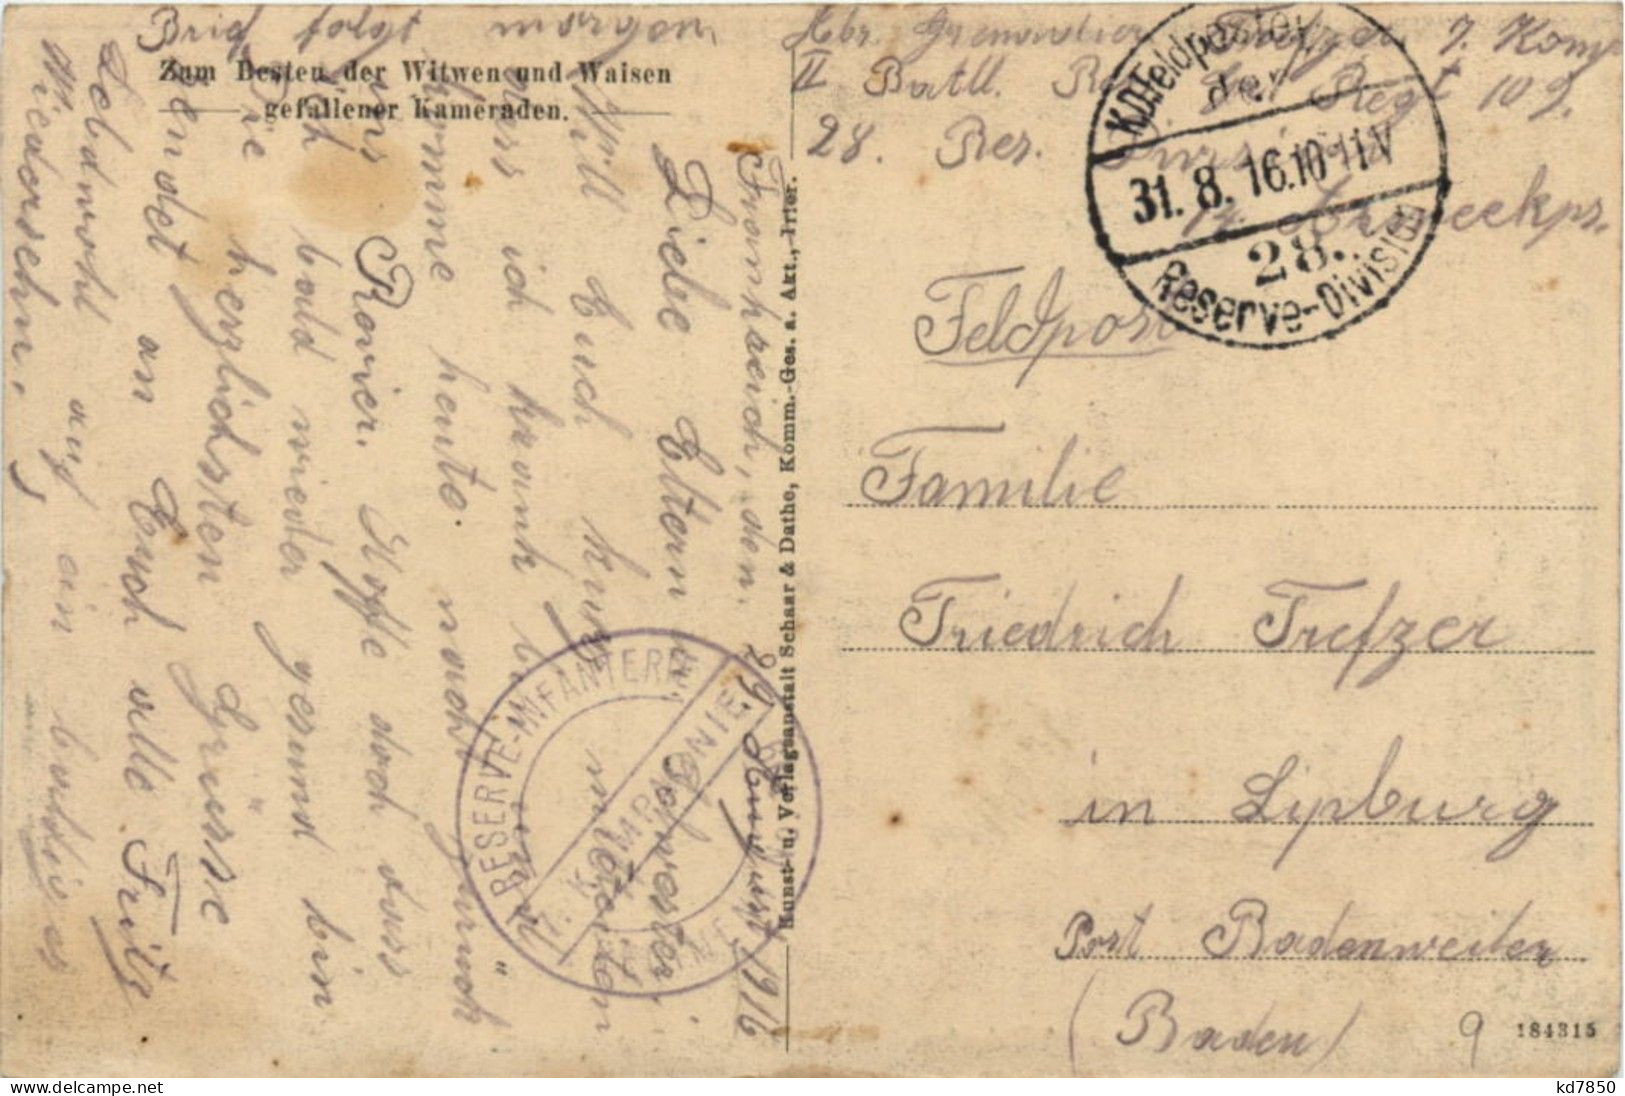 Brief folgt morgen,
Zum Besten der Witwen und Waisen
gefallener Kameraden.
Frankreich, den 29. August 1916
Liebe Eltern u. Schwester.
Will Euch kurz mitteilen
dass ich krank bin und
komme heute noch zurück
ins Revier. Hoffe doch dass
ich bald wieder gesund bin
Die herzlichsten Grüsse
sendet an Euch alle Fritz
Lebdwohl auf ein baldiges
Wiedersehn.
Kunst- u. Verlagsanstalt Schaar & Dathe, Komm.-Ges. a. Akt., Trier.
RESERVE-INFANTERIE
7. KOMPAGNIE
Abs. Grenadier Trefzer 7. Komp
II Batll. Res. Regt 109.
28. Res.
K.D.Feldpostexp.
der
31. 8. 16. 10-11 V
28.
Reserve-Division
Feldpost
Familie
Friedrich Trefzer
in Lipburg
Post Badenweiler
(Baden)
9
184315
kd7850